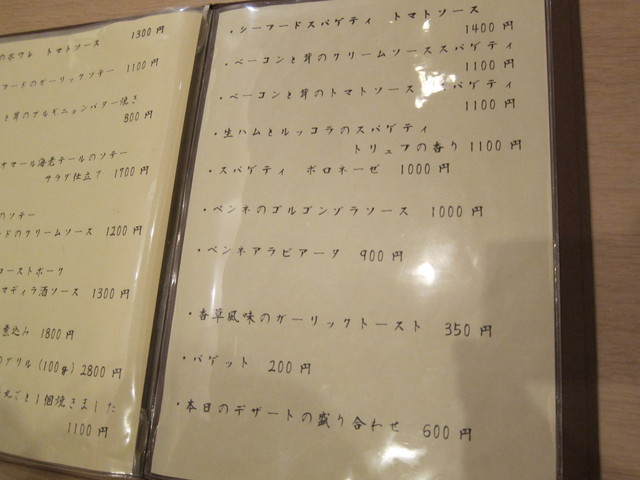 のポワレ トマトソース 1300円
フードのガーリックソテー 1100円
と茸のブルギニョンバター焼き
800円
オマール海老テールのソテー
サラダ仕立て 1700円
のソテー
ドのクリームソース 1200円
ローストポーク
マディラ酒ソース 1300円
煮込み 1800円
のグリル(100g) 2800円
丸ごと1個焼きました
1100円
・シーフードスパゲティ トマトソース
1400円
・ベーコンと茸のクリームソーススパゲティ
1100円
・ベーコンと茸のトマトソース スパゲティ
1100円
・生ハムとルッコラのスパゲティ
トリュフの香り 1100円
・スパゲティ ボロネーゼ 1000円
・ペンネのゴルゴンゾラソース 1000円
・ペンネアラビアータ 900円
・香草風味のガーリックトースト 350円
・バゲット 200円
・本日のデザートの盛り合わせ 600円